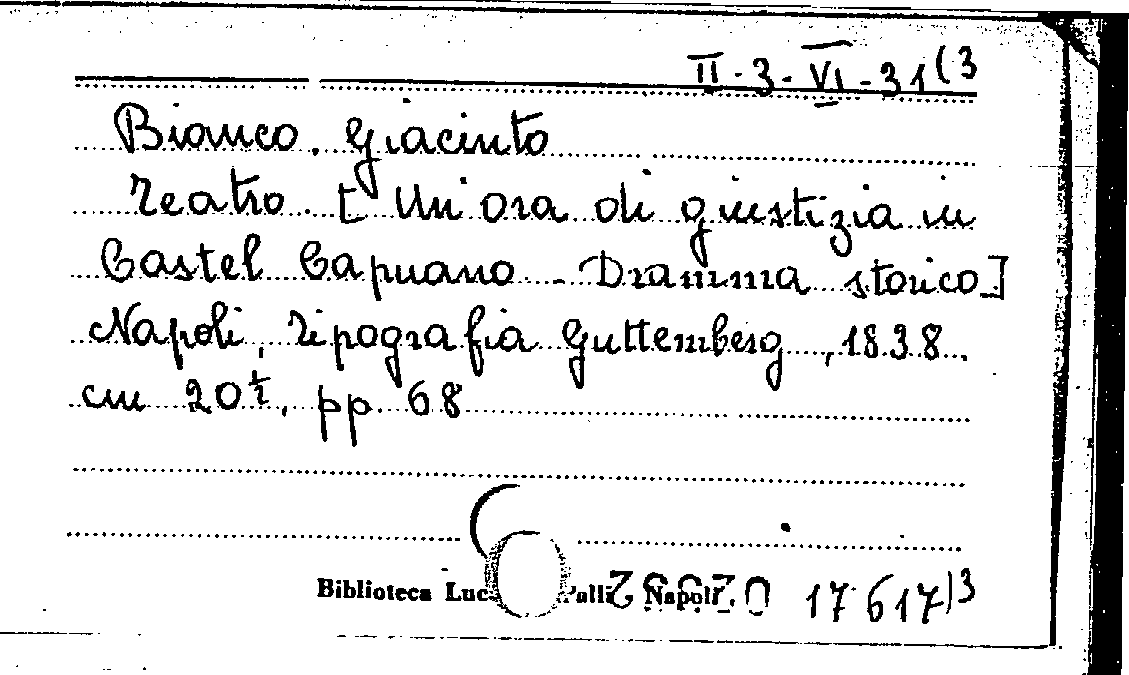 II-3-VI-31(3
Bianco. Giacinto
Teatro. [Un'ora di giustizia in
Castel Capuano - Dramma storico]
Napoli, Tipografia Guttemberg, 1838.
cm 20½, pp. 68
Biblioteca Luc Palli Napoli. 17617)3